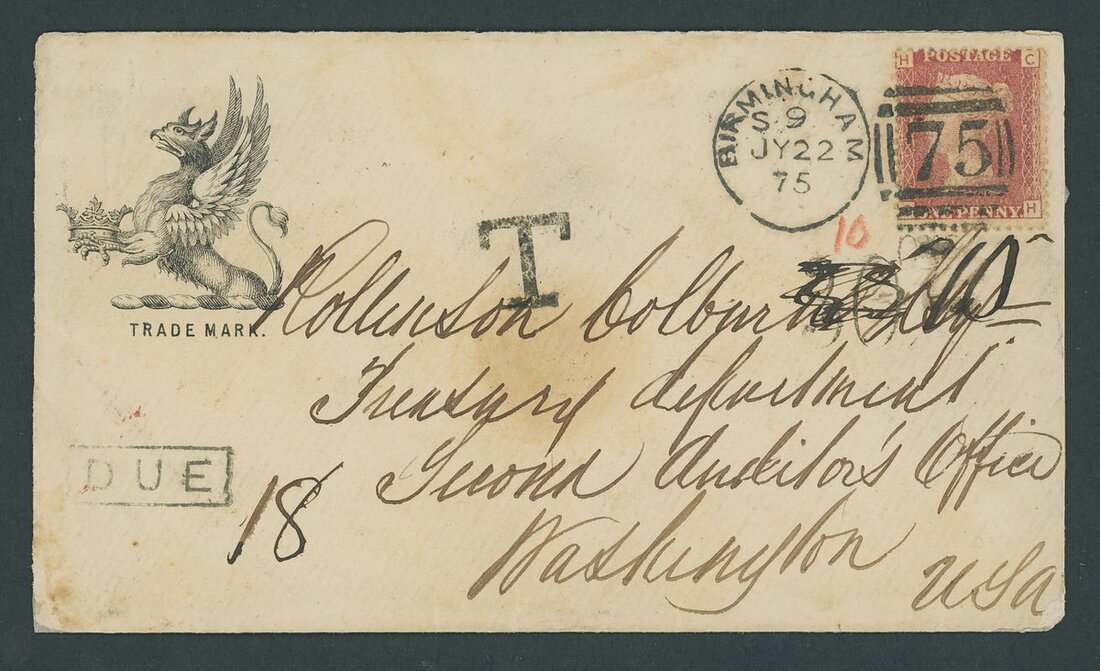 H POSTAGE C
BIRMINGHAM
S 9
JY 22
75
75
ONE PENNY H
10
T
TRADE MARK.
Rollinson Colburn Esq
Treasury department
DUE
18
Second Auditor's Office
Washington
USA